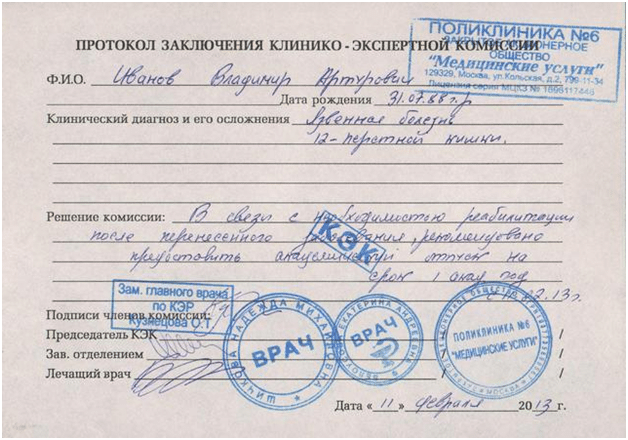 ПОЛИКЛИНИКА №6
ЗАКРЫТОЕ АКЦИОНЕРНОЕ
ОБЩЕСТВО
"Медицинские услуги"
129329, Москва, ул.Кольская, д.2, 799-11-34
Лицензия серия МЦКЗ № 1696117446
ПРОТОКОЛ ЗАКЛЮЧЕНИЯ КЛИНИКО - ЭКСПЕРТНОЙ КОМИССИИ
Ф.И.О. Иванов Владимир Артурович
Дата рождения 31.07.88 г.р
Клинический диагноз и его осложнения Язвенная болезнь
12-перстной кишки.
Решение комиссии: В связи с необходимостью реабилитации
после перенесенного заболевания, рекомендовано
предоставить академический отпуск на
срок 1 один год
КЭК
Зам. главного врача
по КЭР
Кузнецова О.Т
Подписи членов комиссии:
Председатель КЭК / /
Зав. отделением / /
Лечащий врач / /
НАДЕЖДА МИХАЙЛОВНА
ВРАЧ
ЕКАТЕРИНА АНДРЕЕВНА
ВРАЧ
ПОЛИКЛИНИКА №6
"МЕДИЦИНСКИЕ УСЛУГИ"
МОСКВА
Дата « 11 » февраля 2013 г.